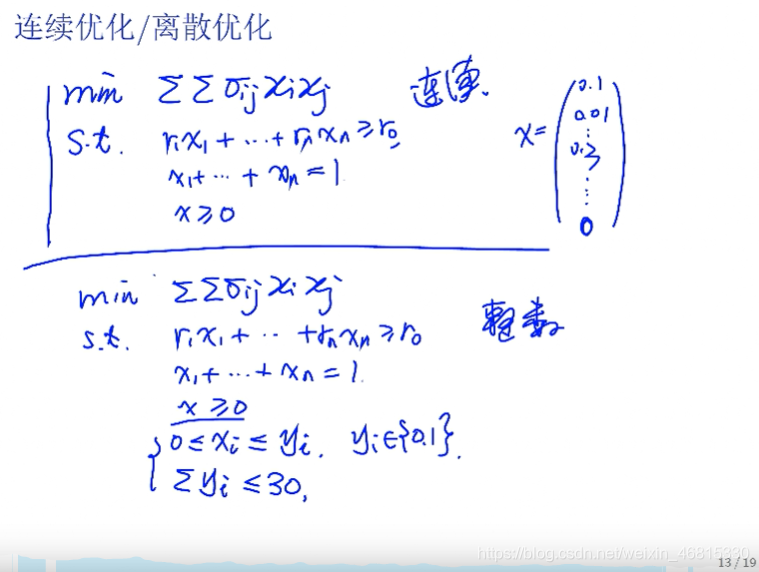 连续优化/离散优化
min ΣΣσijxixj 连续.
s.t. r1x1+⋯+rnxn≥r0
x1+⋯+xn=1
x≥0
x=(0.1 0.01 ⋮ 0.3 ⋮ 0)
min ΣΣσijxixj
s.t. r1x1+⋯+rnxn≥r0 整数
x1+⋯+xn=1.
x≥0
{0≤xi≤yi. yi∈{0.1}.
Σyi≤30,
https://blog.csdn.net/weixin_46815330
13 / 19